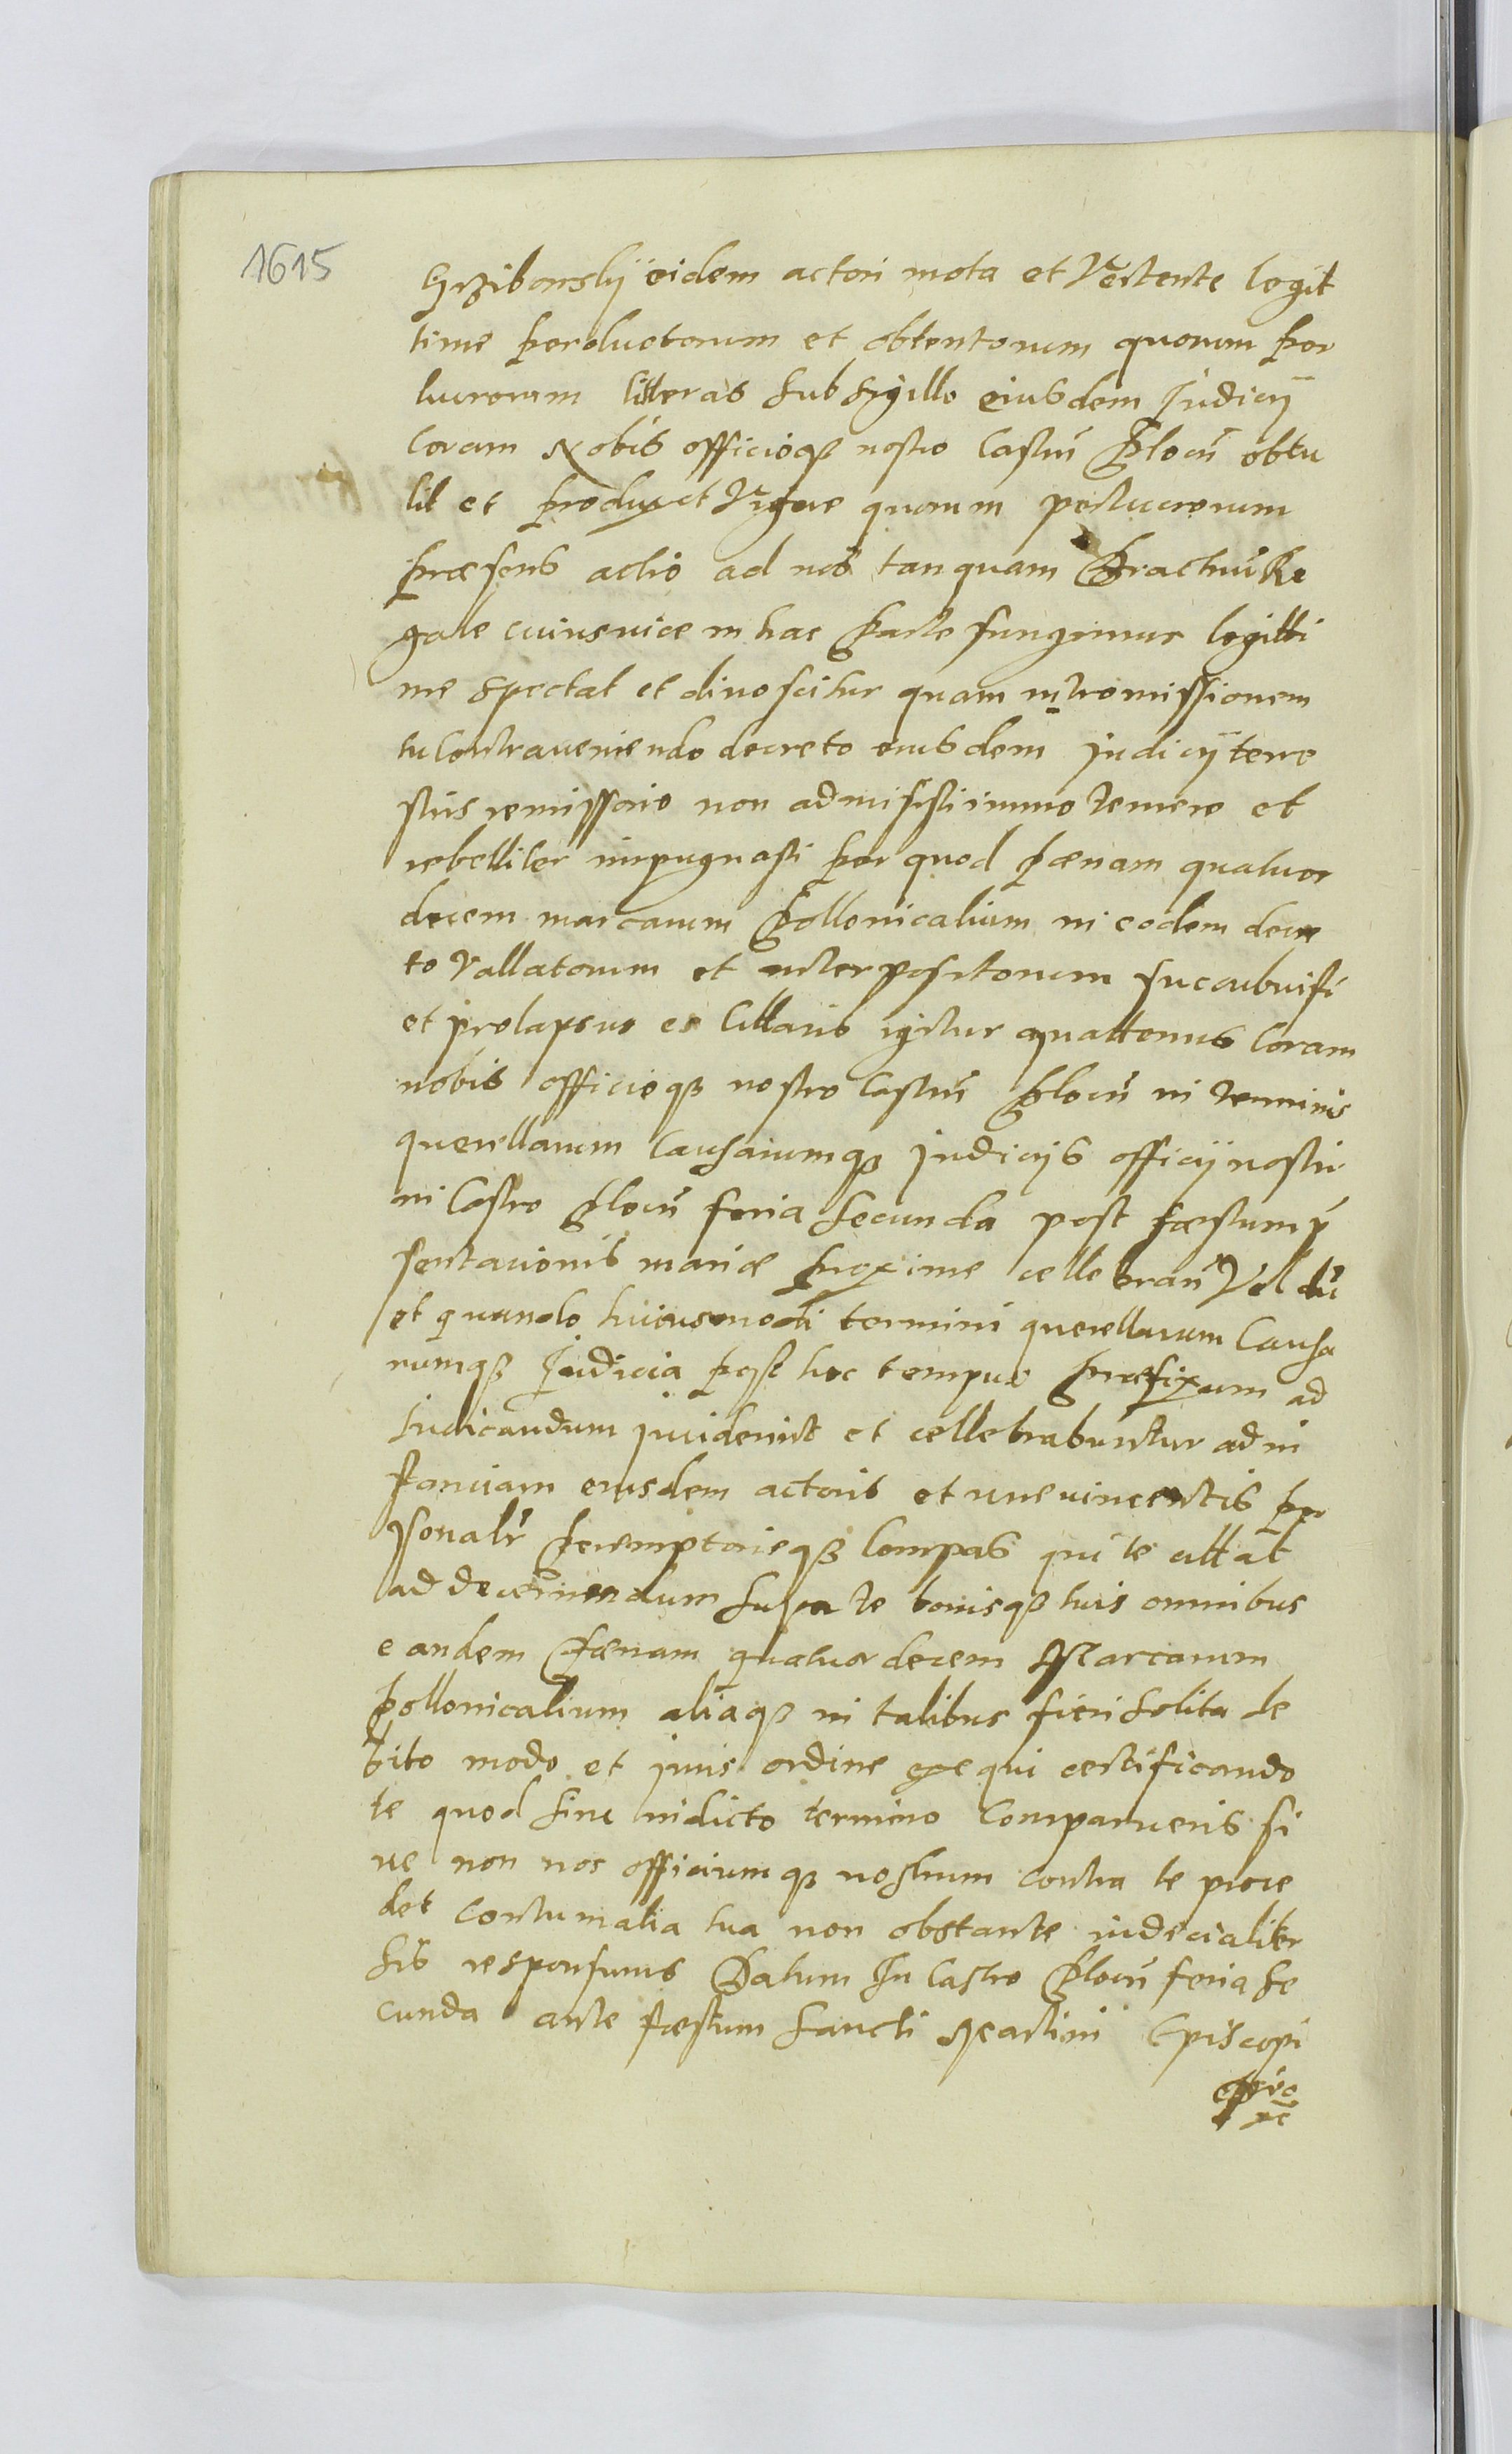 1615
Grzibowsky eidem actori mota et Vertente legit
time perductorum et obtentorum quorum per
lucrorum litteras sub sigillo eiusdem Judicij
Coram Nobis officioq nostro Castrn Plocn obtu
lit et produxit Vigore quorum perlucrorum
præsens actio ad nos tanquam Brachiū Re
gale cuius vice in hac Parte fungimur legitti
me spectat et dinoscitur quam intromissionem
tu Contraveniendo decreto eiusdem judicij terre
stris remissorio non admisisti immo temere et
rebelliter impugnasti per quod pænam quatuor
decem marcarum Pollonicalium in eodem decre
to Vallatorum et interpositorum succubuisti
et prolapsus es Cittaris igitur quattenus Coram
nobis officioq nostro Castrn Plocn in terminis
querellarum Causarumq judicijs officij nostri
in Castro Plocn feria secunda post fæstum p
sentacionis mariæ proxime cellebran Vel dū
et quando huiusmodi termini querellarum Causa
rumq Judicia post hoc tempus præfixum ad
iudicandum inciderint et cellebrabuntur ad in
stanciam eiusdem actoris et iure vincentis per
sonalr Peremptorieq Compas qui te cittat
ad decernendum super te bonisq tuis omnibus
eandem Pænam quatuordecem Marcarum
pollonicalium aliaq in talibus fieri solita de
bito modo et juris ordine exequi certificando
te quod sive in dicto termino Comparueris si
ve non nos officiumq nostrum contra te proce
det Contumatia tua non obstante iudicialiter
sis responsurus Datum In Castro Plocn feria se
cunda ante fæstum Sancti Martini Episcopi